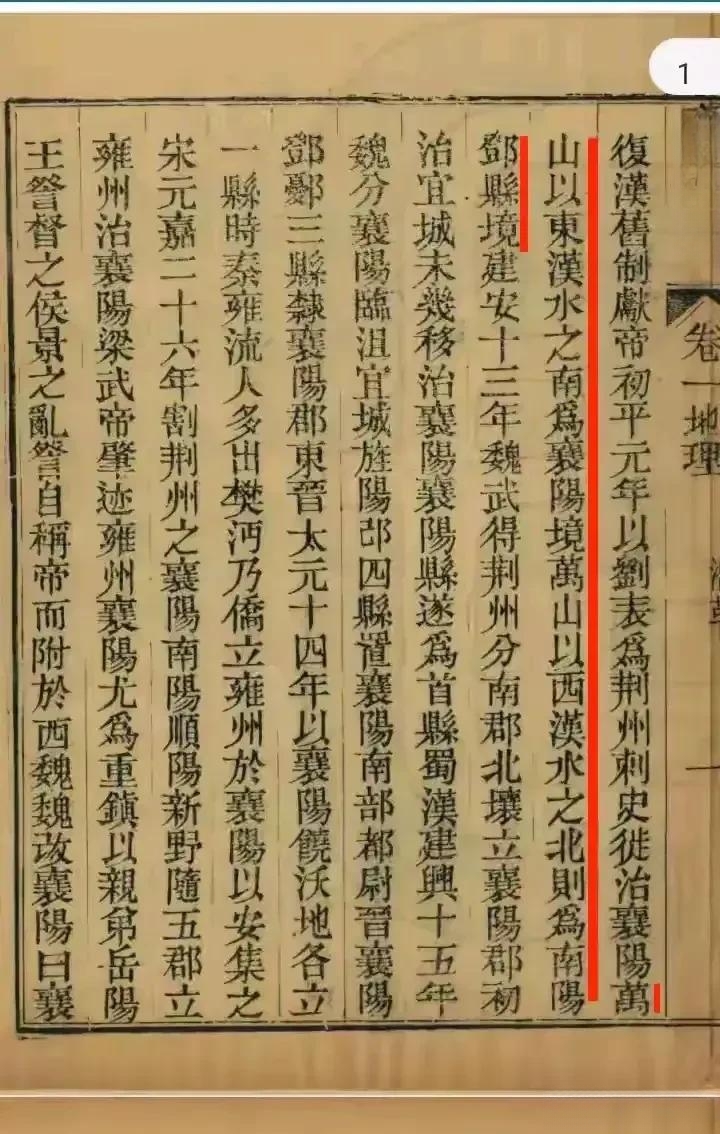 1
卷一 地理
復漢舊制獻帝初平元年以劉表爲荆州刺史徙治襄陽萬
山以東漢水之南爲襄陽境萬山以西漢水之北則爲南陽
鄧縣境建安十三年魏武得荆州分南郡北壤立襄陽郡初
治宜城未幾移治襄陽襄陽縣遂爲首縣蜀漢建興十五年
魏分襄陽臨沮宜城旌陽邔四縣置襄陽南部都尉晉襄陽
鄧鄾三縣隸襄陽郡東晉太元十四年以襄陽饒沃地各立
一縣時秦雍流人多出樊沔乃僑立雍州於襄陽以安集之
宋元嘉二十六年割荆州之襄陽南陽順陽新野隨五郡立
雍州治襄陽梁武帝肇迹雍州襄陽尤爲重鎮以親弟岳陽
王詧督之侯景之亂詧自稱帝而附於西魏魏改襄陽曰襄